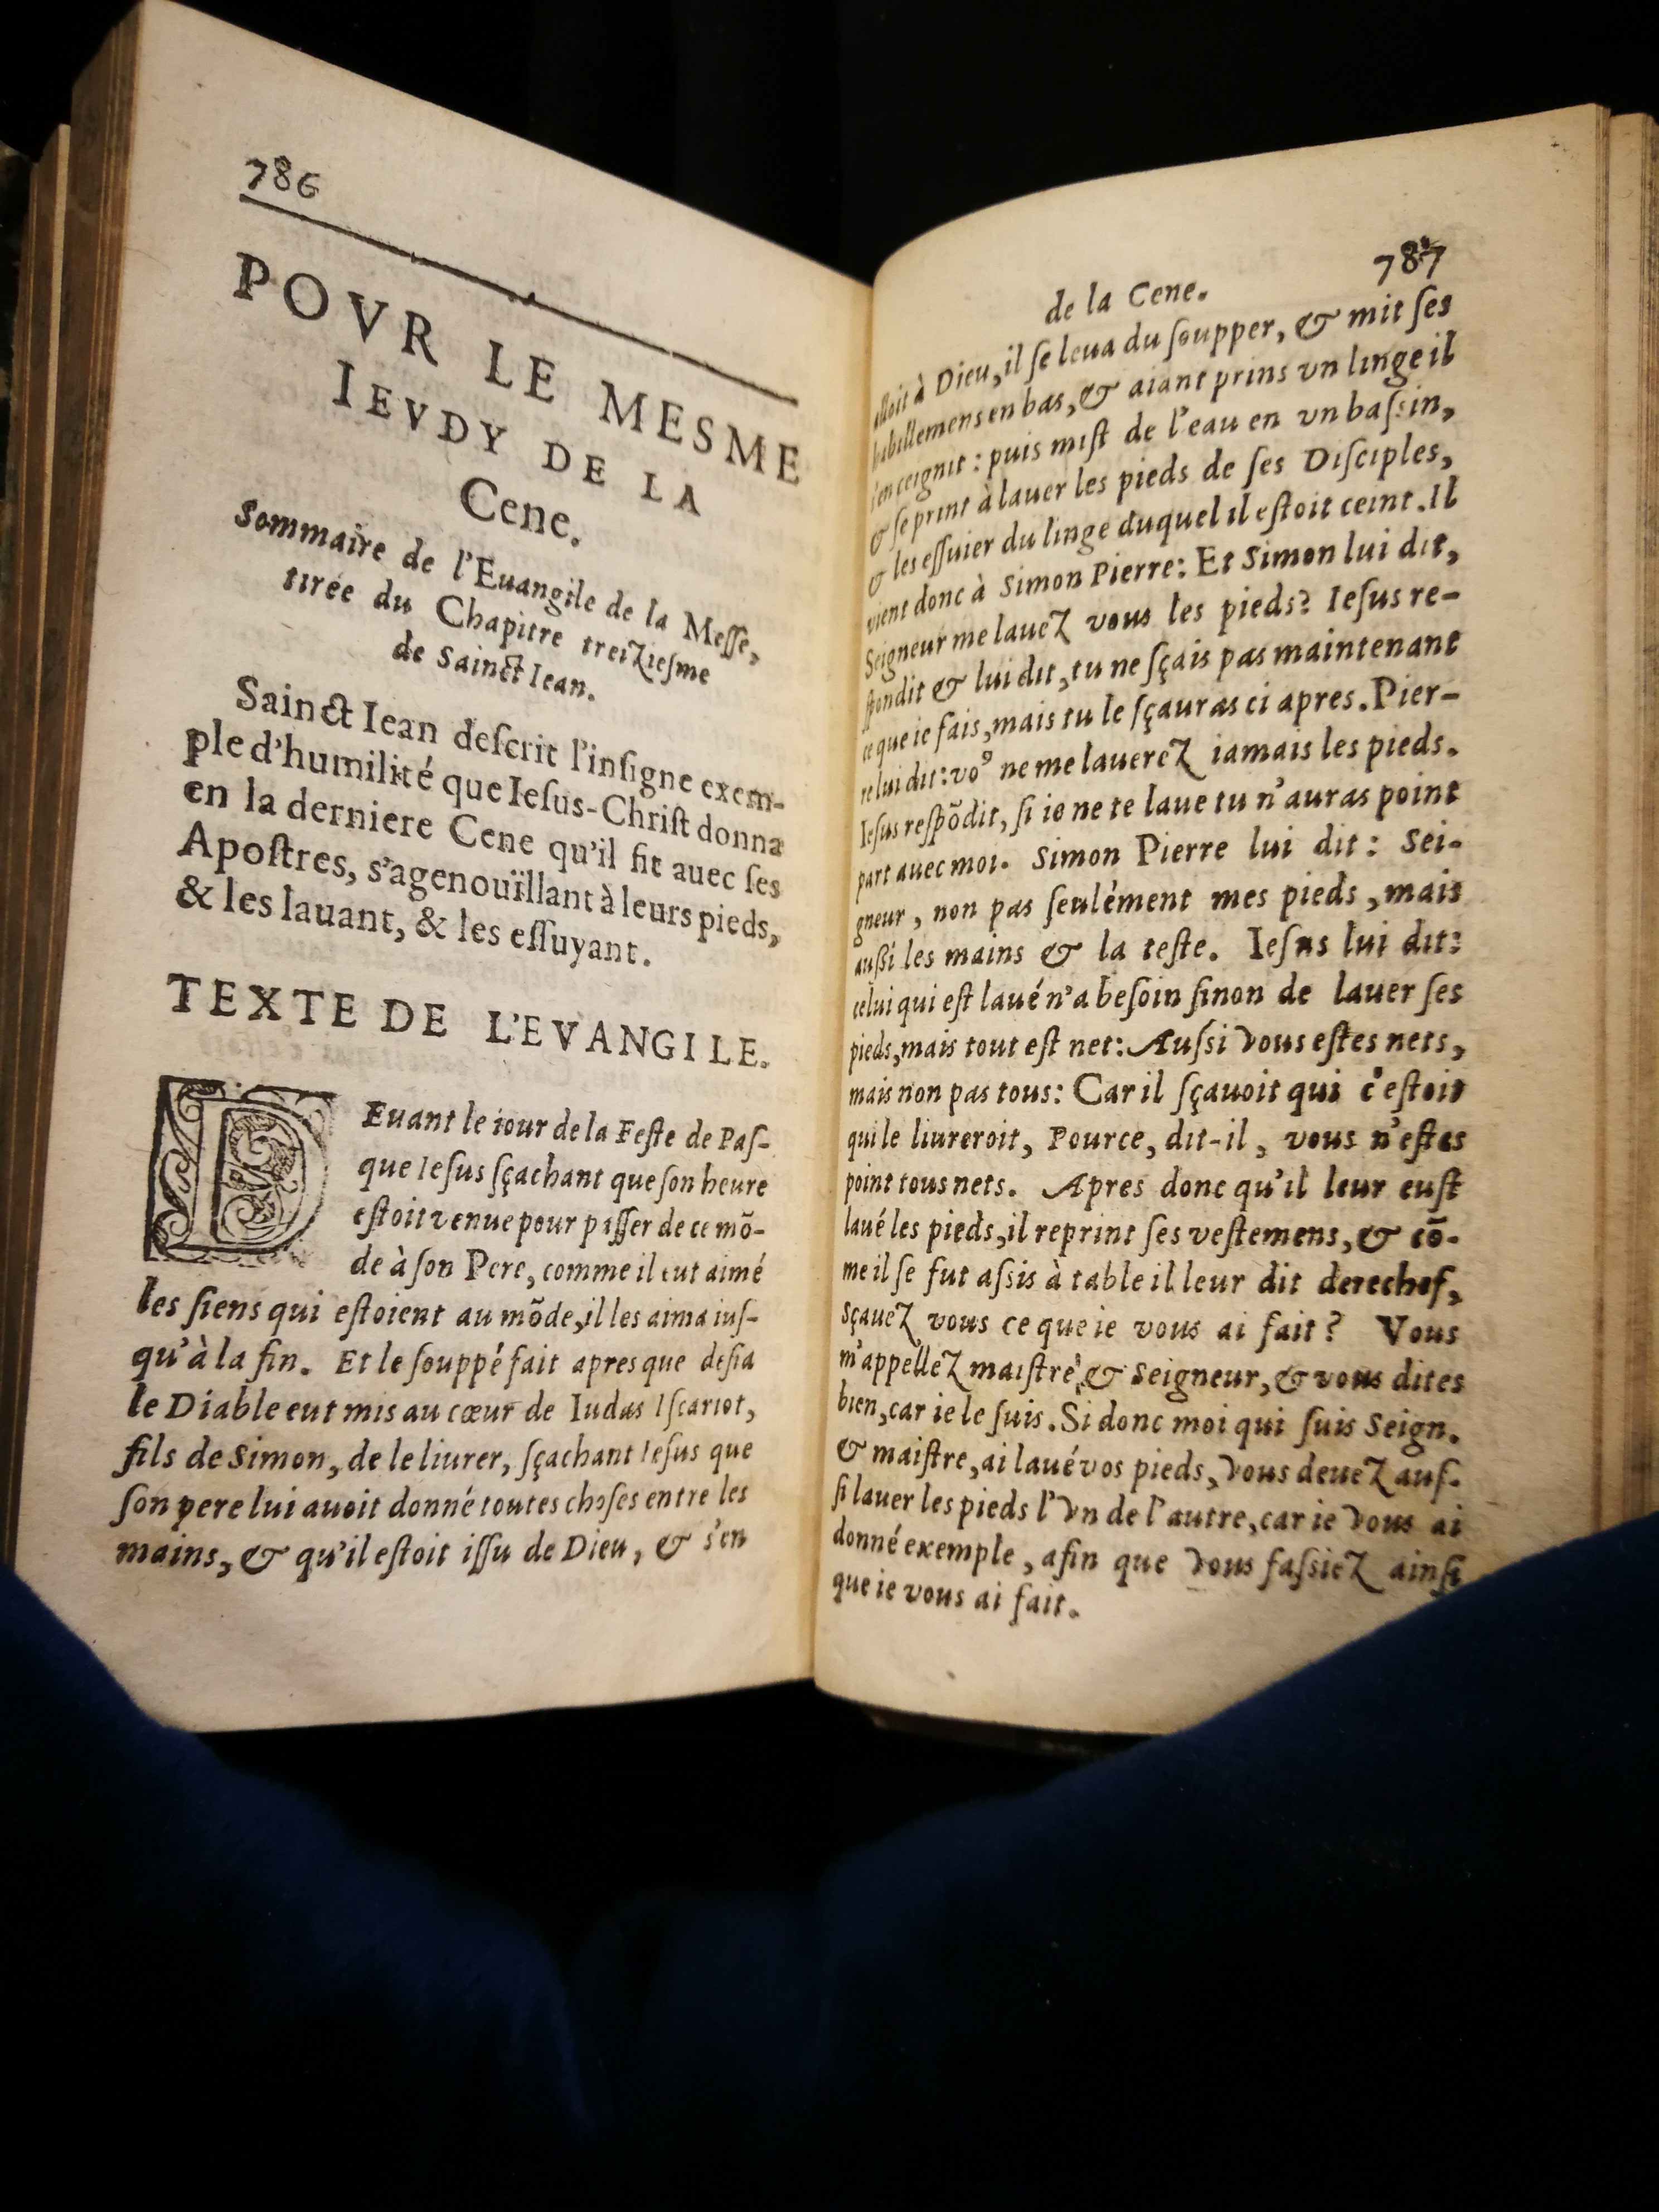 786
POVR LE MESME
IEVDY DE LA
Cene.
Sommaire de l'Euangile de la Messe,
tirée du Chapitre treiziesme
de Sainct Iean.
Sainct Iean descrit l'insigne exem-
ple d'humilité que Iesus-Christ donna
en la derniere Cene qu'il fit auec ses
Apostres, s'agenouïllant à leurs pieds,
& les lauant, & les essuyant.
TEXTE DE L'EVANGILE.
DEuant le iour de la Feste de Pas-
que Iesus sçachant que son heure
estoit venue pour passer de ce mõ-
de à son Pere, comme il eut aimé
les siens qui estoient au mõde, il les aima ius-
qu'à la fin. Et le souppé fait apres que desia
le Diable eut mis au cœur de Iudas Iscariot,
fils de Simon, de le liurer, sçachant Iesus que
son pere lui auoit donné toutes choses entre les
mains, & qu'il estoit issu de Dieu, & s'en
787
de la Cene.
alloit à Dieu, il se leua du soupper, & mit ses
habillemens en bas, & aiant prins vn linge il
s'en ceignit : puis mist de l'eau en vn bassin,
& se print à lauer les pieds de ses Disciples,
& les essuier du linge duquel il estoit ceint. Il
vient donc à Simon Pierre: Et Simon lui dit,
Seigneur me lauez vous les pieds? Iesus re-
spondit & lui dit, tu ne sçais pas maintenant
ce que ie fais, mais tu le sçauras ci apres. Pier-
re lui dit: voꝰ ne me lauerez iamais les pieds.
Iesus respõdit, si ie ne te laue tu n'auras point
part auec moi. Simon Pierre lui dit : Sei-
gneur, non pas seulément mes pieds, mais
aussi les mains & la teste. Iesus lui dit:
celui qui est laué n'a besoin sinon de lauer ses
pieds, mais tout est net: Aussi vous estes nets,
mais non pas tous: Car il sçauoit qui c'estoit
qui le liureroit, Pource, dit-il, vous n'estes
point tous nets. Apres donc qu'il leur eust
laué les pieds, il reprint ses vestemens, & cõ-
me il se fut assis à table il leur dit derechef,
sçauez vous ce que ie vous ai fait? Vous
m'appellez maistre, & Seigneur, & vous dites
bien, car ie le suis. Si donc moi qui suis Seign.
& maistre, ai laué vos pieds, vous deuez aus-
si lauer les pieds l'vn de l'autre, car ie vous ai
donné exemple, afin que vous fassiez ainsi
que ie vous ai fait.